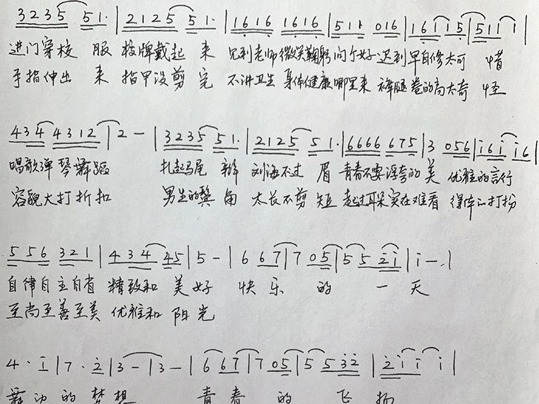 3235 51·|2125 51·|1616 1616|511 016|161i15|511 i
进门穿校 服 校牌戴起 来 见到老师微笑鞠躬问个好 迟到早自修太可 惜
手指伸出 来 指甲没剪 完 不讲卫生 身体健康哪里来 裤腿卷的高太奇 怪
434 4312|2 -|3235 51·|2125 51·|6666 675|3 056|i6i i6|
唱歌弹琴舞蹈 扎起马尾 辫 刘海不过 眉 青春不要浮夸的美 优雅的言行
容貌大打折扣 男生的鬓 角 太长不剪 短 超过耳朵实在难看 得体的打扮
556 321|434 45|5 -|6 67|7 05|5 5 2i|i - ·|
自律自主自省 精致和 美好 快 乐 的 一 天
至尚至善至美 优雅和 阳光
4 · i|7 · 2|3 -|3 -|6 67|7 05|5 5 32|2i i i|
舞动 的 梦想 青 春 的 飞 扬